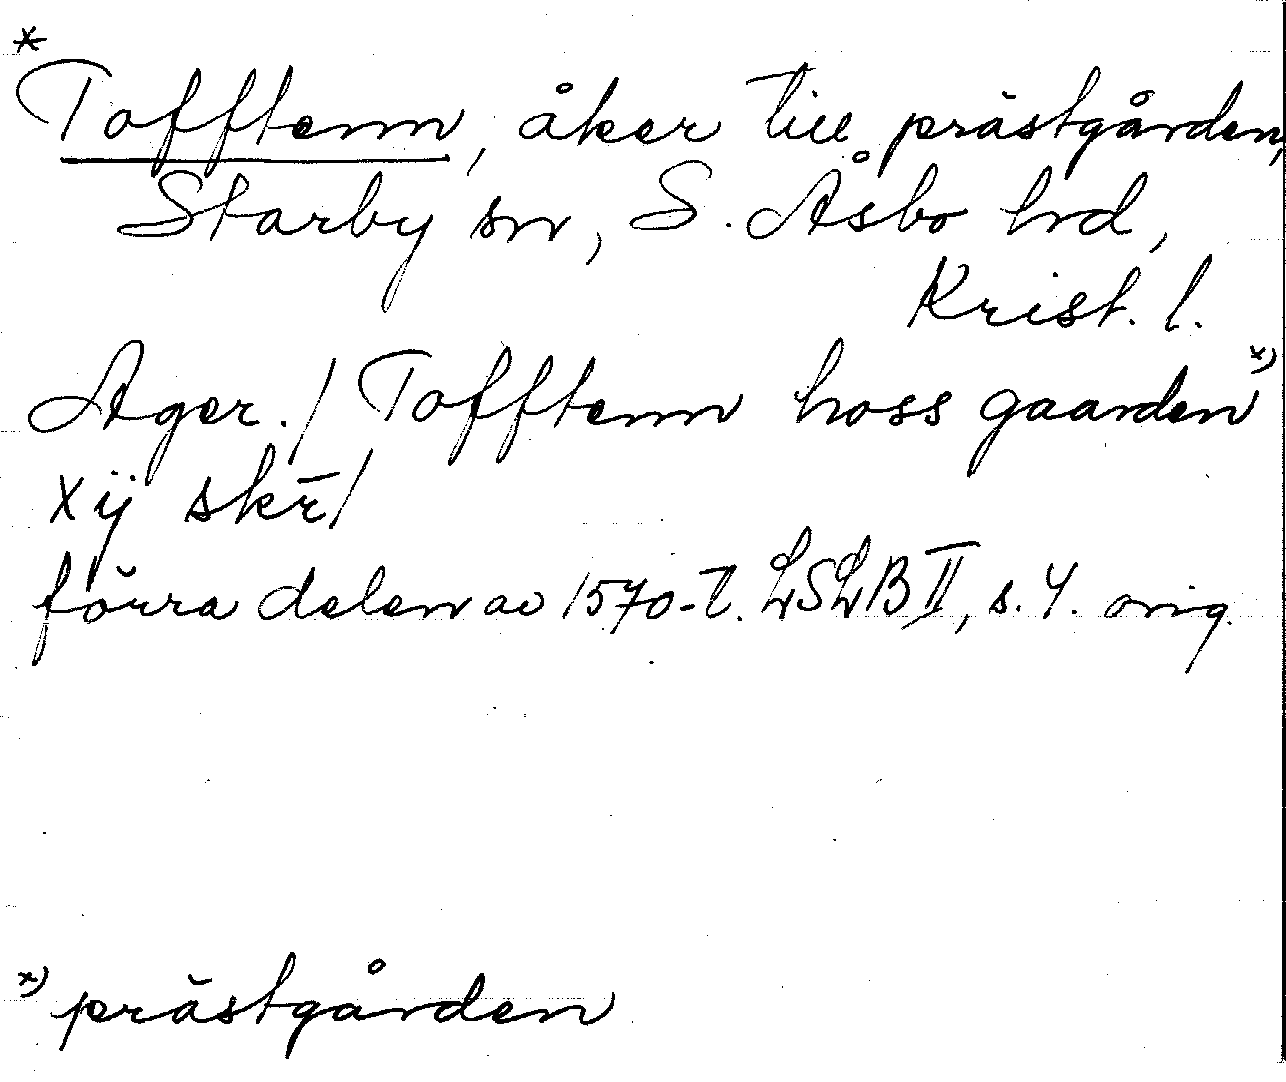 *
Tofftenn, åker till prästgården,
Starby sn, S. Åsbo hd,
Krist. l.
Ager. / Tofftenn hoss gaarden x)
xij skr̄ /
förra delen av 1570-t. LSLB II, s. 4. orig.
x) prästgården